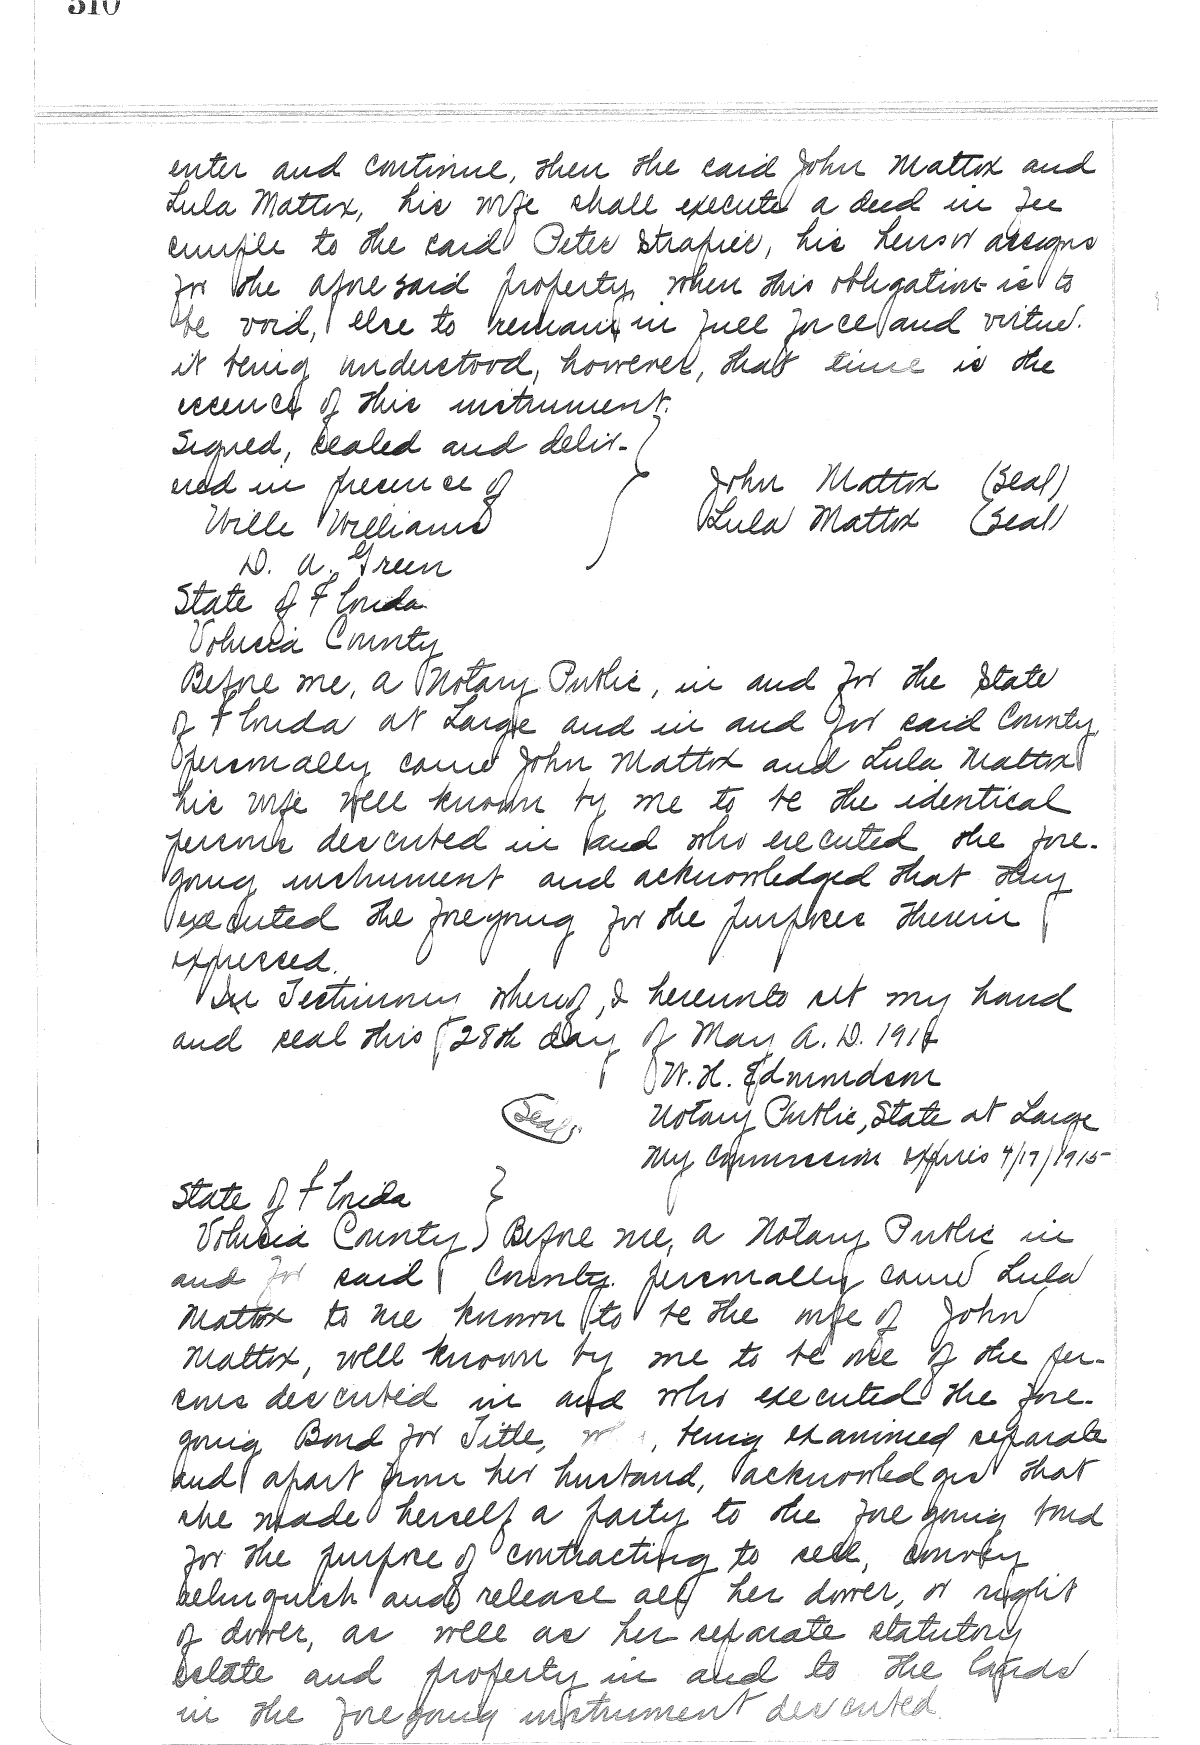 310
enter and continue, then the said John Mattox and
Lula Mattox, his wife shall execute a deed in fee
simple to the said Peter Strapier, his heirs or assigns
for the afore said property, when this obligation is to
be void, else to remain in full force and virtue.
it being understood, however, that time is the
essence of this instrument.
Signed, sealed and deliv-
ered in presence of
John Mattox (Seal)
Wille Williams
Lula Mattox (Seal)
D. A. Green
State of Florida
Volusia County
Before me, a Notary Public, in and for the State
of Florida at Large and in and for said County,
personally came John Mattox and Lula Mattox
his wife well known by me to be the identical
persons described in and who executed the fore-
going instrument and acknowledged that they
executed the foregoing for the purposes therein
expressed.
In Testimony whereof, I hereunto set my hand
and seal this 28th day of May A. D. 191
W. H. Edmondson
(Seal) Notary Public, State at Large
My Commission expires 4/17/1915
State of Florida
Volusia County) Before me, a Notary Public in
and for said County, personally came Lula
Mattox to me known to be the wife of John
Mattox, well known by me to be one of the per-
sons described in and who executed the fore-
going Bond for Title, , being examined separate
and apart from her husband, acknowledged that
she made herself a party to the foregoing bond
for the purpose of contracting to sell, convey
relinquish and release all her dower, or right
of dower, as well as her separate statutory
estate and property in and to the lands
in the foregoing instrument described.